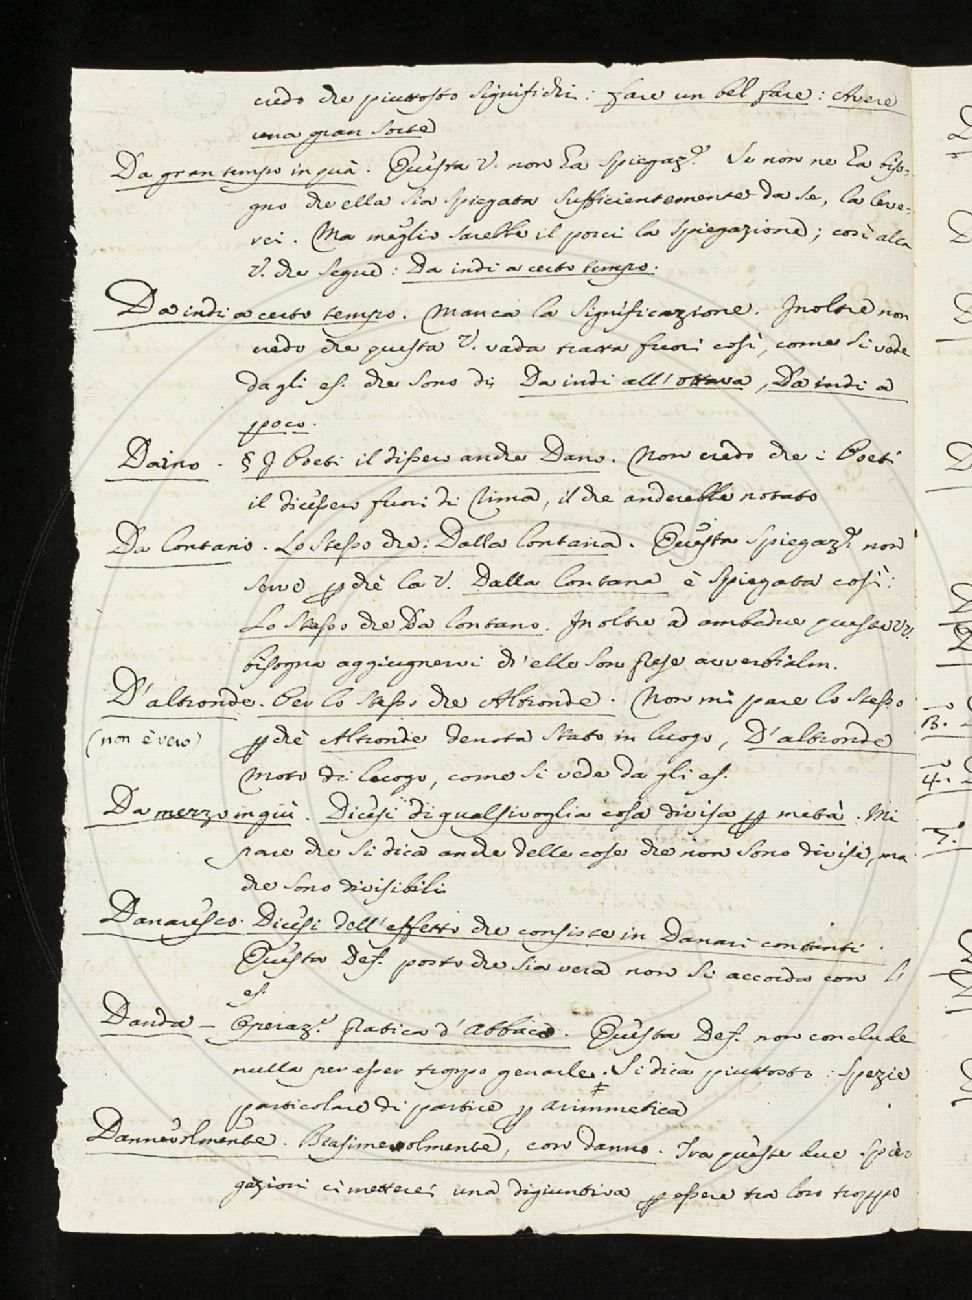 credo che piuttosto significhi: fare un bel fare: Avere
una gran sorte
Da gran tempo in quà. Questa V. non ha spiegaz.e Se non ne ha biso-
gno che ella sia spiegata sufficientemente da se, la leve-
rei. Ma meglio sarebbe il porci la spiegazione; così alla
V. che segue: Da indi a certo tempo:
Da indi a certo tempo. Manca la significazione. Inoltre non
credo che questa V. vada tratta fuori così, come si vede
dagli es. che sono di; Da indi all'ottava, Da indi a
poco.
Daino. § I Poeti il dissero anche Dano. Non credo che i Poeti
il dicessero fuori di Rima, il che anderebbe notato
Da lontano. Lo stesso che: Dalla lontana. Questa spiegaz.e non
serve pchè la V. Dalla lontana è spiegata così:
Lo stesso che Da lontano. Inoltre ad ambedue queste VV.
bisogna aggiugnervi ch'elle son prese avverbialm.
D'altronde. Per lo stesso che Altronde. Non mi pare lo stesso
(non è vero) pchè Altronde denota stato in luogo, D'altronde
Moto di luogo, come si vede dagli es.
Da mezzo in giù. Dicesi di qualsivoglia cosa divisa p metà. Mi
pare che si dica anche delle cose che non sono divise, ma
che sono divisibili
Danaresco. Dicesi dell'effetto che consiste in Danari contanti.
Questa Def. posto che sia vera non si accorda con li
es.
Danda - Operaz.e pratica d'Abbaco. Questa Def. non conclude
nulla per esser troppo genarle. Si dica piuttosto: Spezie
particolare di partire p arimmetica
Dannevolmente. Biasimevolmente, con danno. Tra queste due spie-
gazioni ci metterei una digiuntiva p essere tra loro troppo